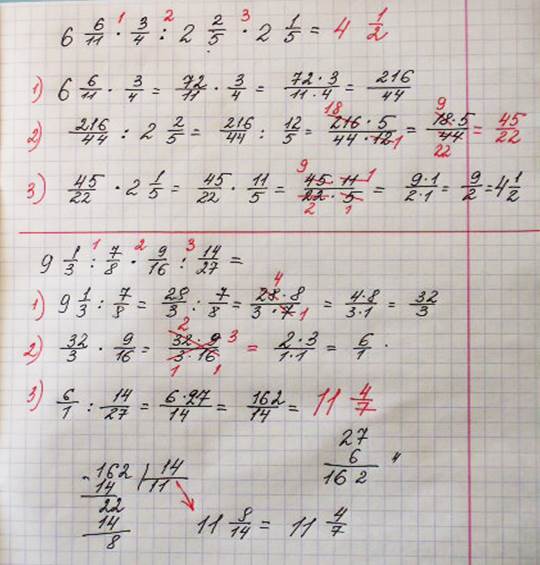 6 6/11 · 3/4 : 2 2/5 · 2 1/5 = 4 1/2
1 2 3
1) 6 6/11 · 3/4 = 72/11 · 3/4 = 72·3/11·4 = 216/44
2) 216/44 : 2 2/5 = 216/44 : 12/5 = 216·5/44·12 = 18·5/44 = 45/22
18 1 9 22
3) 45/22 · 2 1/5 = 45/22 · 11/5 = 45·11/22·5 = 9·1/2·1 = 9/2 = 4 1/2
9 1 2 1
9 1/3 : 7/8 · 9/16 : 14/27 =
1 2 3
1) 9 1/3 : 7/8 = 28/3 : 7/8 = 28·8/3·7 = 4·8/3·1 = 32/3
4 1
2) 32/3 · 9/16 = 32·9/3·16 = 2·3/1·1 = 6/1
2 3 1 1
3) 6/1 : 14/27 = 6·27/14 = 162/14 = 11 4/7
27
6
162
162 14
14 11
22
14
8
11 8/14 = 11 4/7